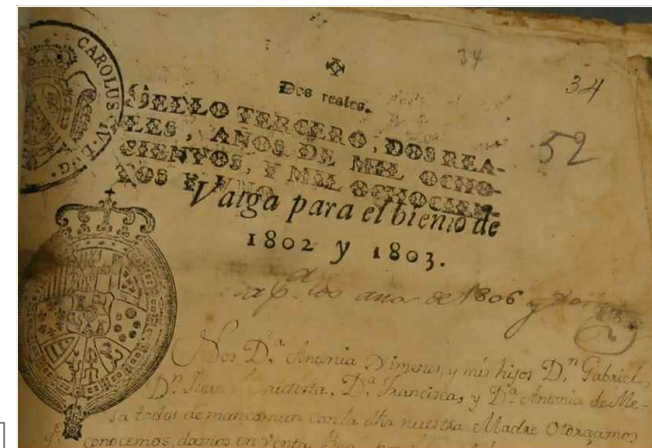 CAROLUS IV
34
34
52
Dos reales.
SELLO TERCERO, DOS REA-
LES, AÑOS DE MIL OCHO-
CIENTOS, Y MIL OCHOCIEN-
TOS Y UNO.
Valga para el bienio de
1802 y 1803.
los año de 1806 y
Nos D.ª Antonia Ximenes, y mis hijos D.n Gabriel,
D.n Juan Bautista, D.ª Francisca, y D.ª Antonia de Me-
sa todos de mancomun con la dha nuestra Madre Otorgamos
conocemos, damos en Venta